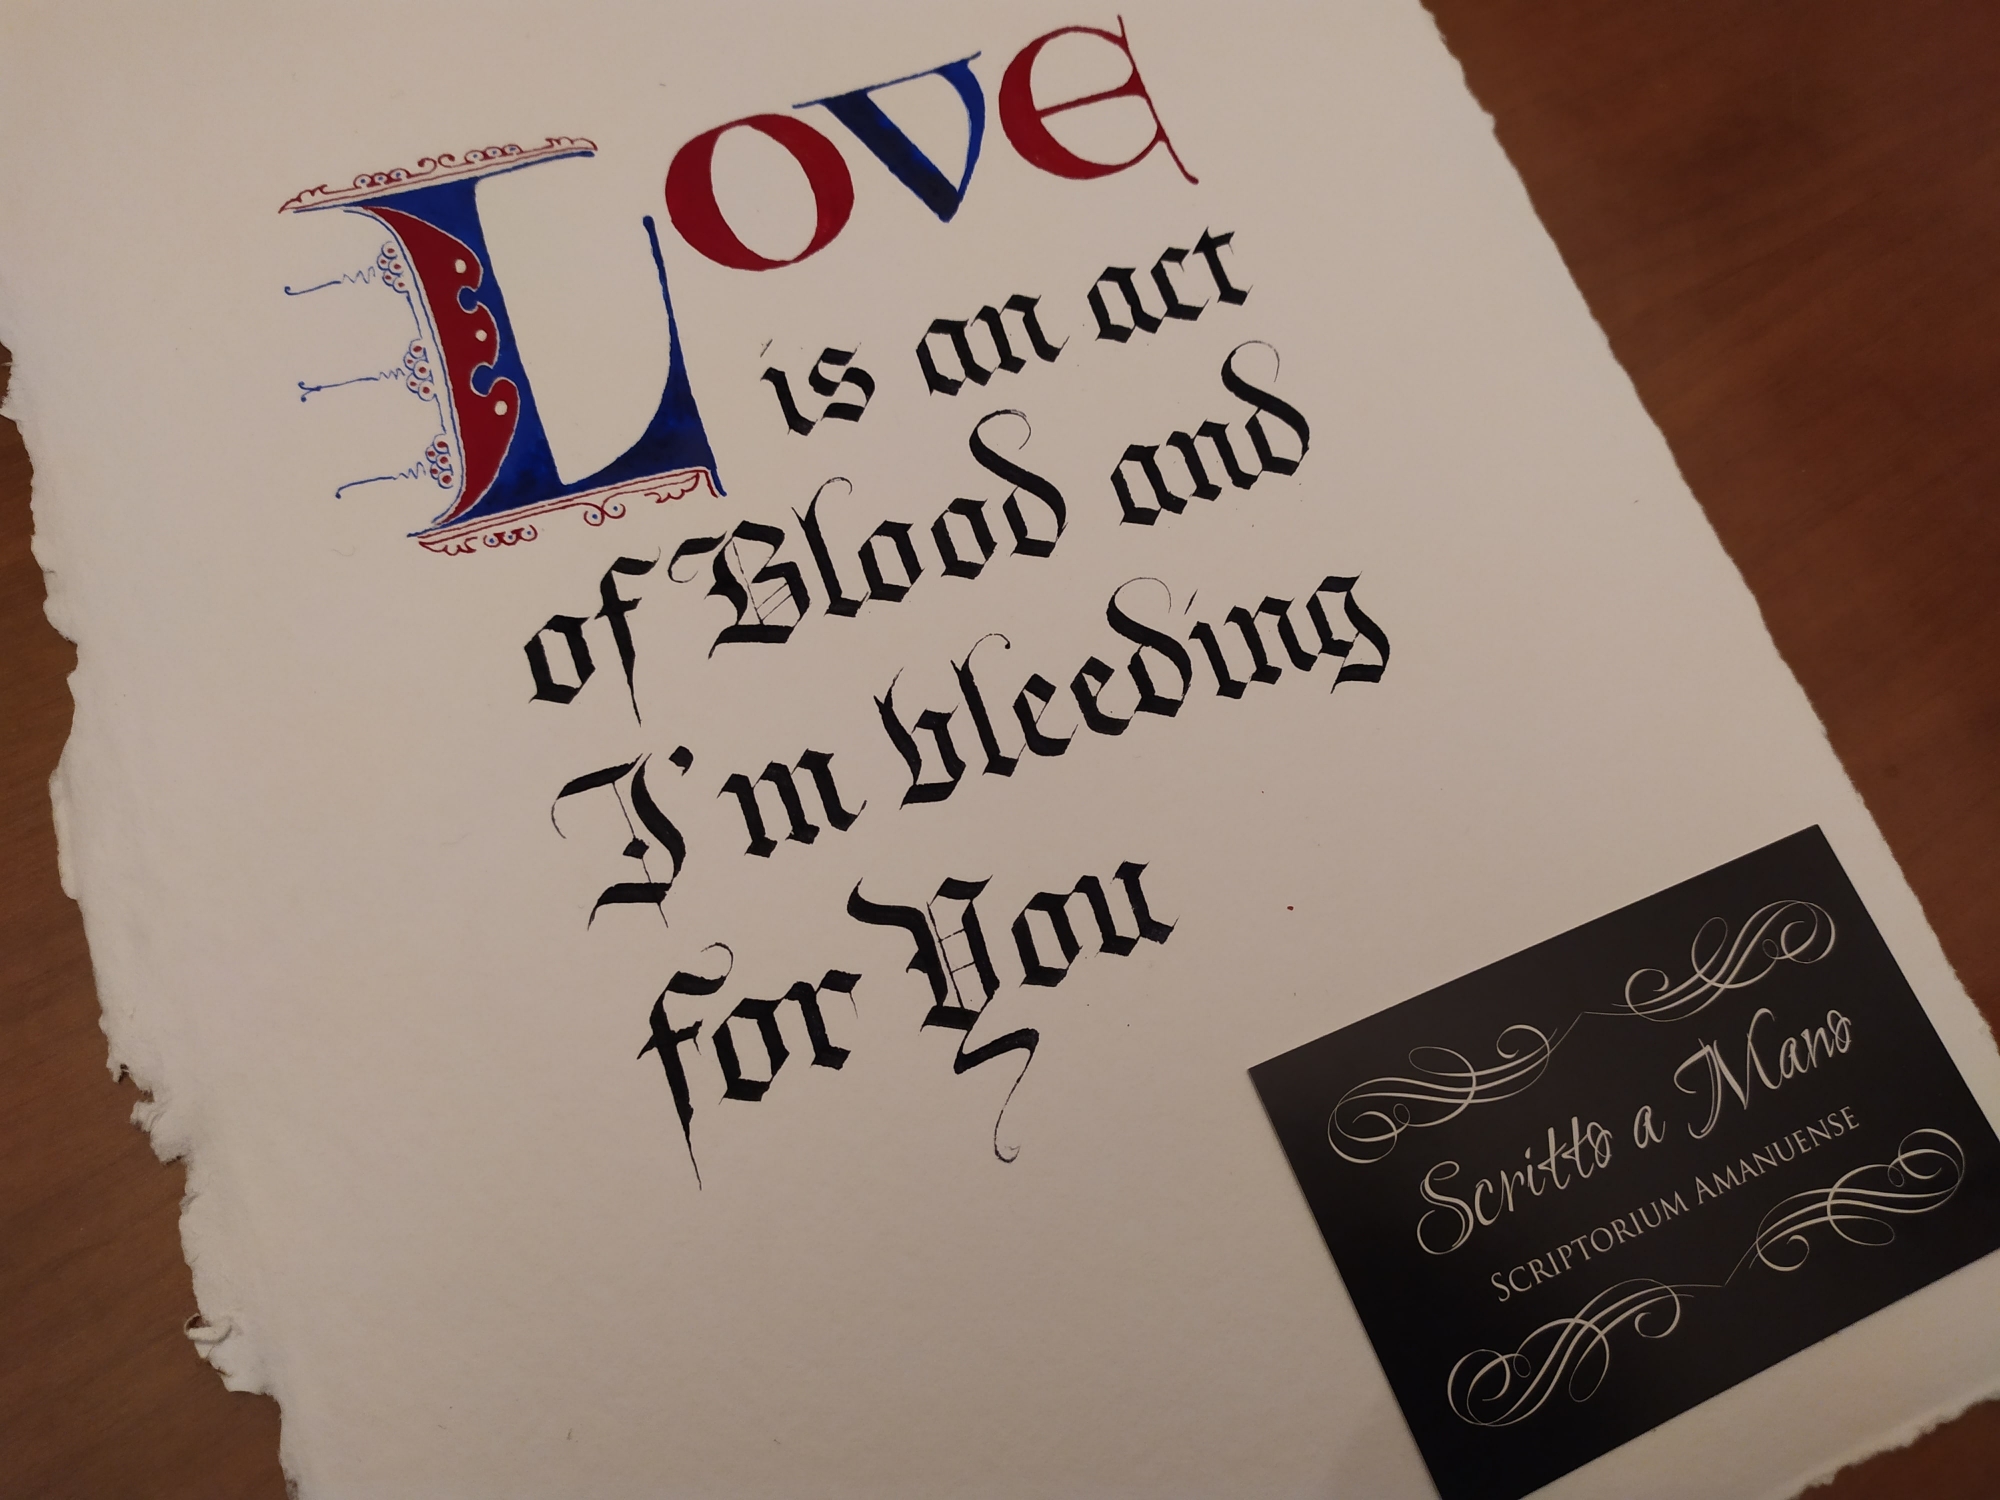 Love
is an act
of Blood and
I'm bleeding
for You
Scritto a Mano
SCRIPTORIUM AMANUENSE